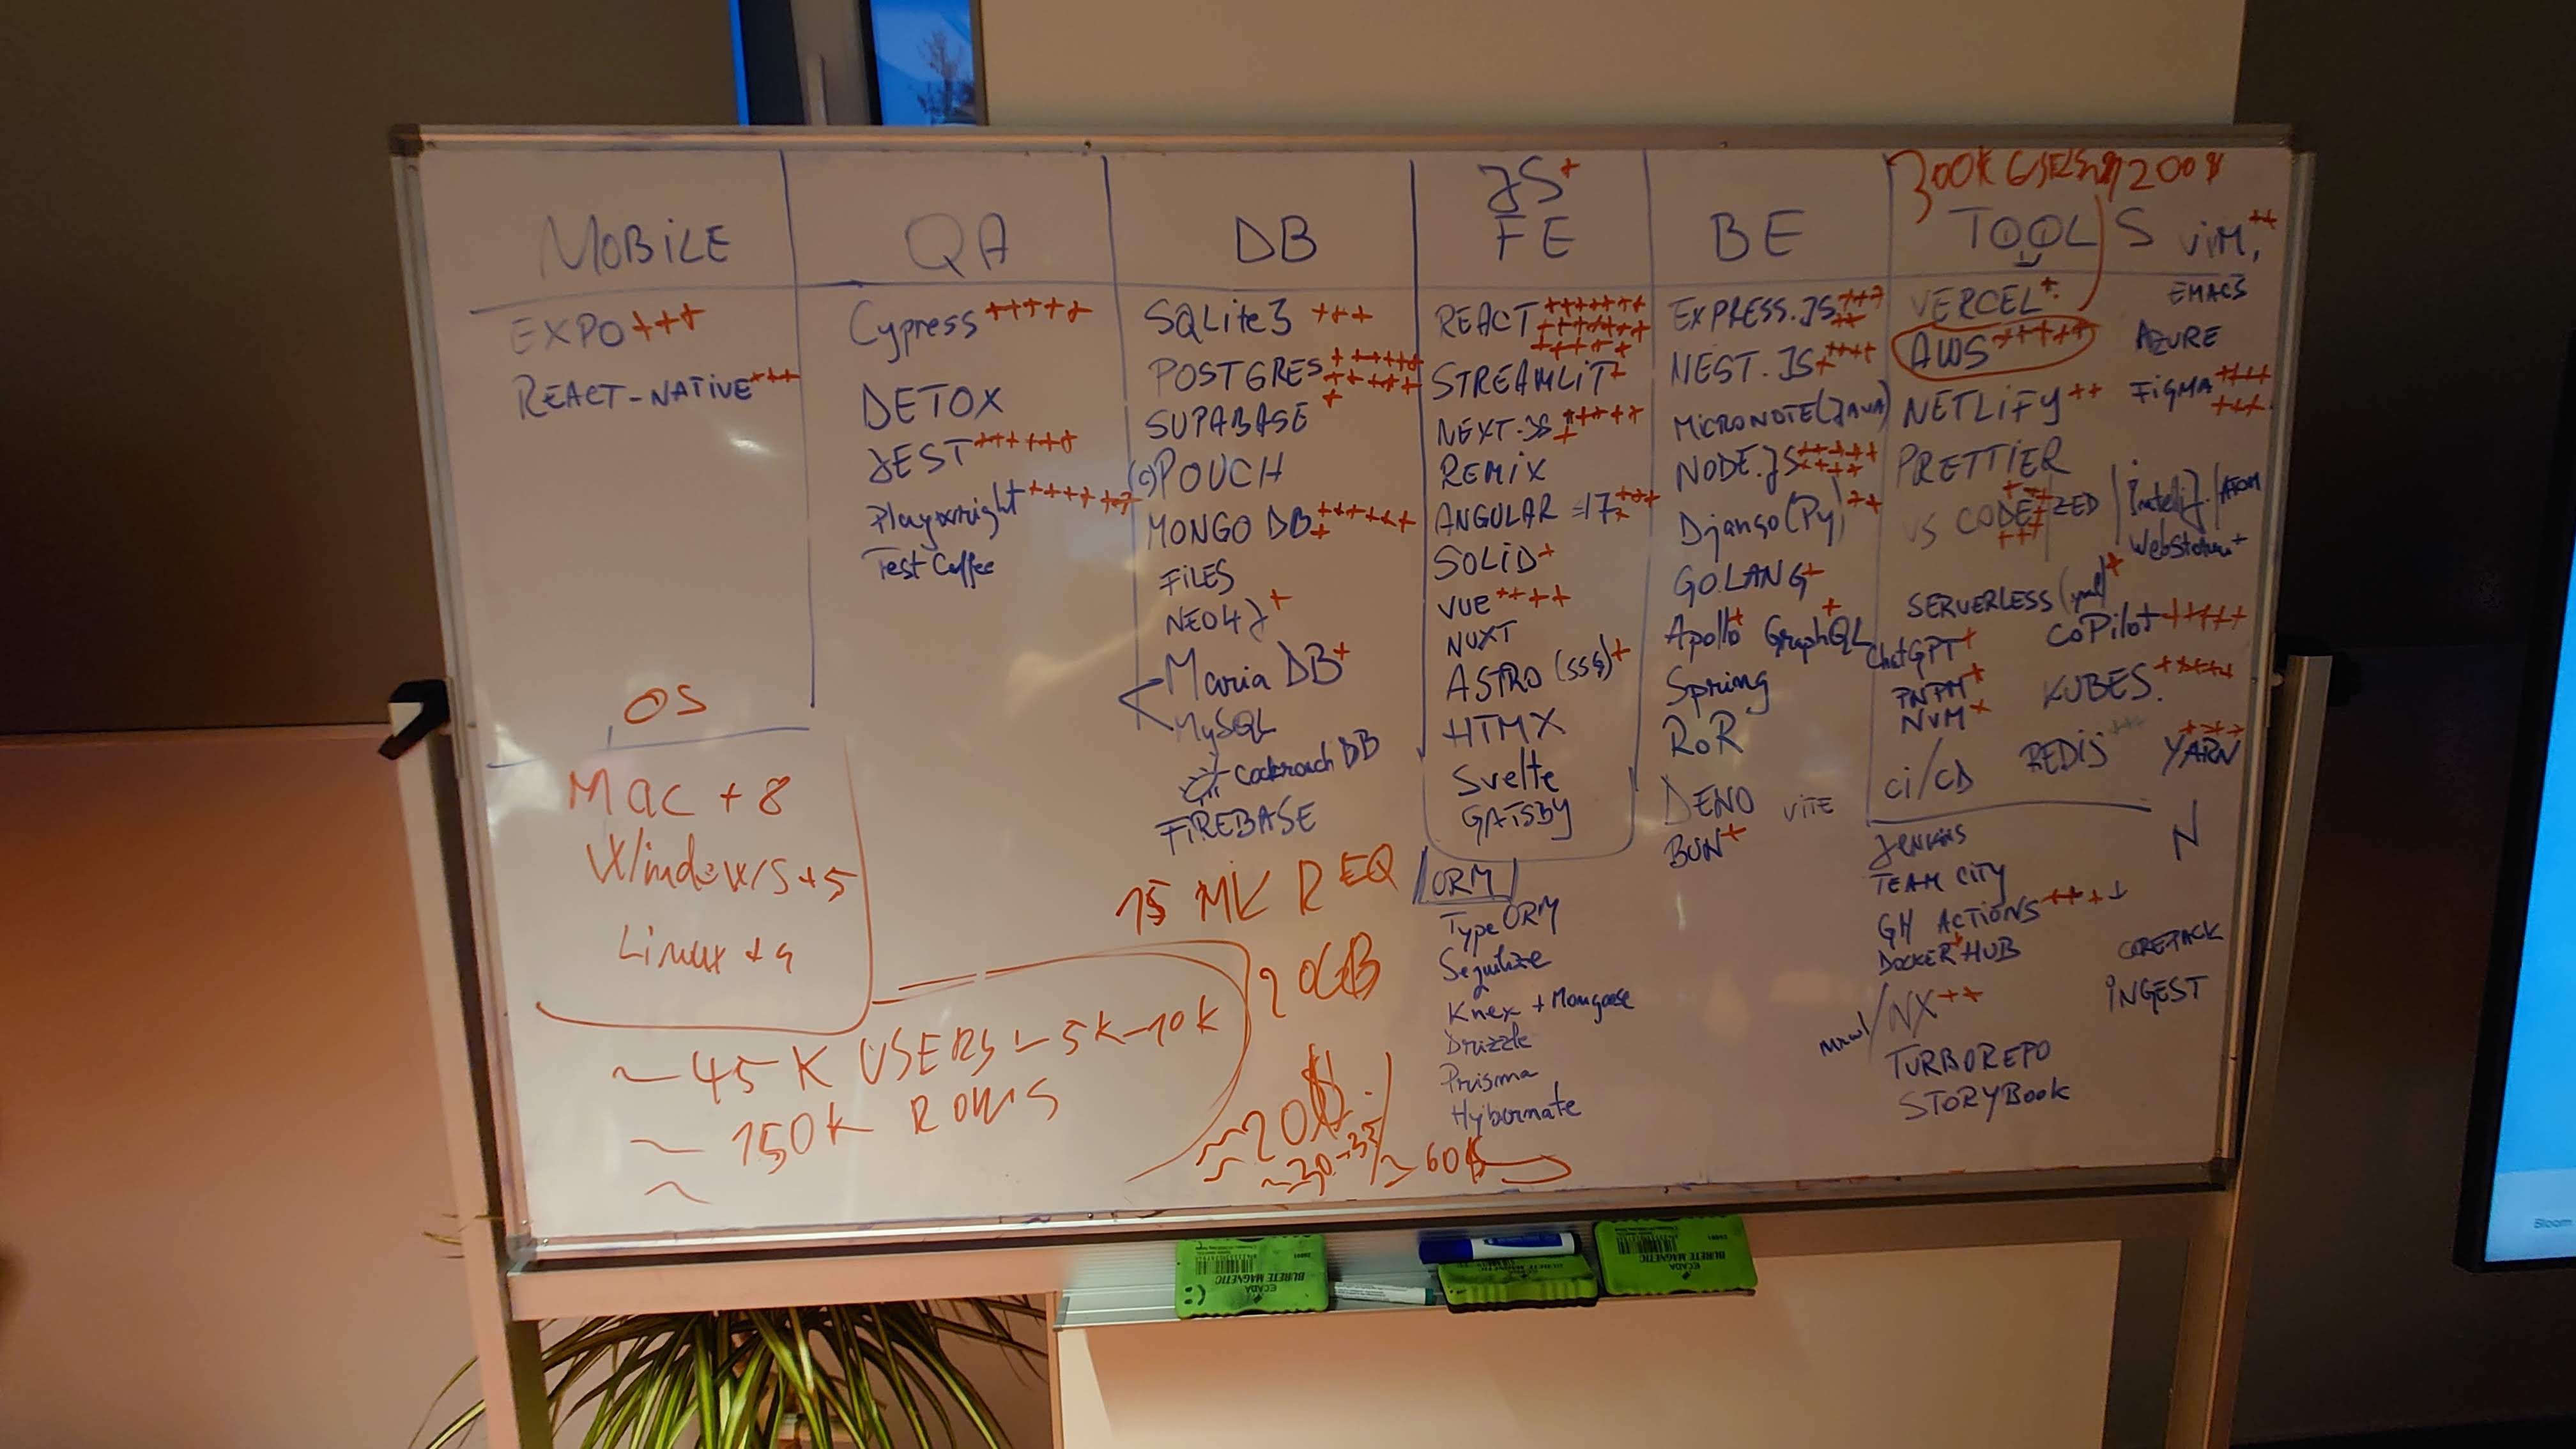 MOBILE
EXPO +++
REACT-NATIVE +++
OS
MAC + 8
Windows + 5
Linux + 4
~ 45K USERS ~ 5K-10K
~ 150K ROWS
~
QA
Cypress +++++
DETOX
JEST ++++++
Playwright +++++++
Test Caffee
DB
SQLite3 +++
POSTGRES
SUPABASE
(c)POUCH
MONGO DB
FILES
NEO4J +
Maria DB +
MySQL
Cockroach DB
FIREBASE
15 MK REQ
20GB
~20$
~30-35/~60$
JS +
FE
REACT
STREAMLIT +
NEXT.JS
REMIX
ANGULAR =17
SOLID +
VUE ++++
NUXT
ASTRO (SSG) +
HTMX
Svelte
GATSBY
ORM
TypeORM
Sequilize
Knex + Mongoose
Drizzle
Prisma
Hybernate
BE
EXPRESS.JS +++++
NEST.JS +++++
MICRONOTE (JAVA)
NODE.JS
Django (Py) ++
GOLANG +
Apollo + GraphQL +
Spring
RoR
DENO VITE
BUN +
300K USERS 200$
TOOLS
VERCEL +
AWS +++++
NETLIFY ++
PRETTIER
VS CODE / ZED / IntelliJ / ATOM
WebStorm +
SERVERLESS (yml) +
ChatGPT +
PNPM +
NVM +
CI/CD
JENKINS
TEAM CITY
GH ACTIONS ++++
DOCKER HUB +
/ NX ++
TURBOREPO
STORYBOOK
VIM, ++
EMACS
AZURE
FIGMA +++++++
COPilot +++++
KUBES. +++++
REDIS +++
YARN +++
N
COREPACK
INGEST
ECADA
BURETE MAGNETIC
ECADA
BURETE MAGNETIC
Bloom